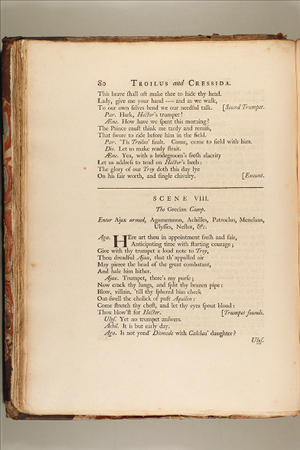 80 TROILUS and CRESSIDA.
This brave shall oft make thee to hide thy head.
Lady, give me your hand — and as we walk,
To our own selves bend we our needful talk. [Sound Trumpet.
Par. Hark, Hector's trumpet!
Æne. How have we spent this morning?
The Prince must think me tardy and remiss,
That swore to ride before him in the field.
Par. 'Tis Troilus' fault. Come, come to field with him.
Dio. Let us make ready strait.
Æne. Yea, with a bridegroom's fresh alacrity
Let us address to tend on Hector's heels:
The glory of our Troy doth this day lye
On his fair worth, and single chivalry. [Exeunt.
SCENE VIII.
The Grecian Camp.
Enter Ajax armed, Agamemnon, Achilles, Patroclus, Menelaus,
Ulysses, Nestor, &c.
Aga. HERE art thou in appointment fresh and fair,
Anticipating time with starting courage;
Give with thy trumpet a loud note to Troy,
Thou dreadful Ajax, that th' appalled air
May pierce the head of the great combatant,
And hale him hither.
Ajax. Trumpet, there's my purse;
Now crack thy lungs, and split thy brazen pipe:
Blow, villain, 'till thy sphered bias cheek
Out-swell the cholick of puft Aquilon:
Come stretch thy chest, and let thy eyes spout blood:
Thou blow'st for Hector. [Trumpet sounds.
Ulys. No trumpet answers.
Achil. It is but early day.
Aga. Is not yond' Diomede with Calchas' daughter?
Ulys.